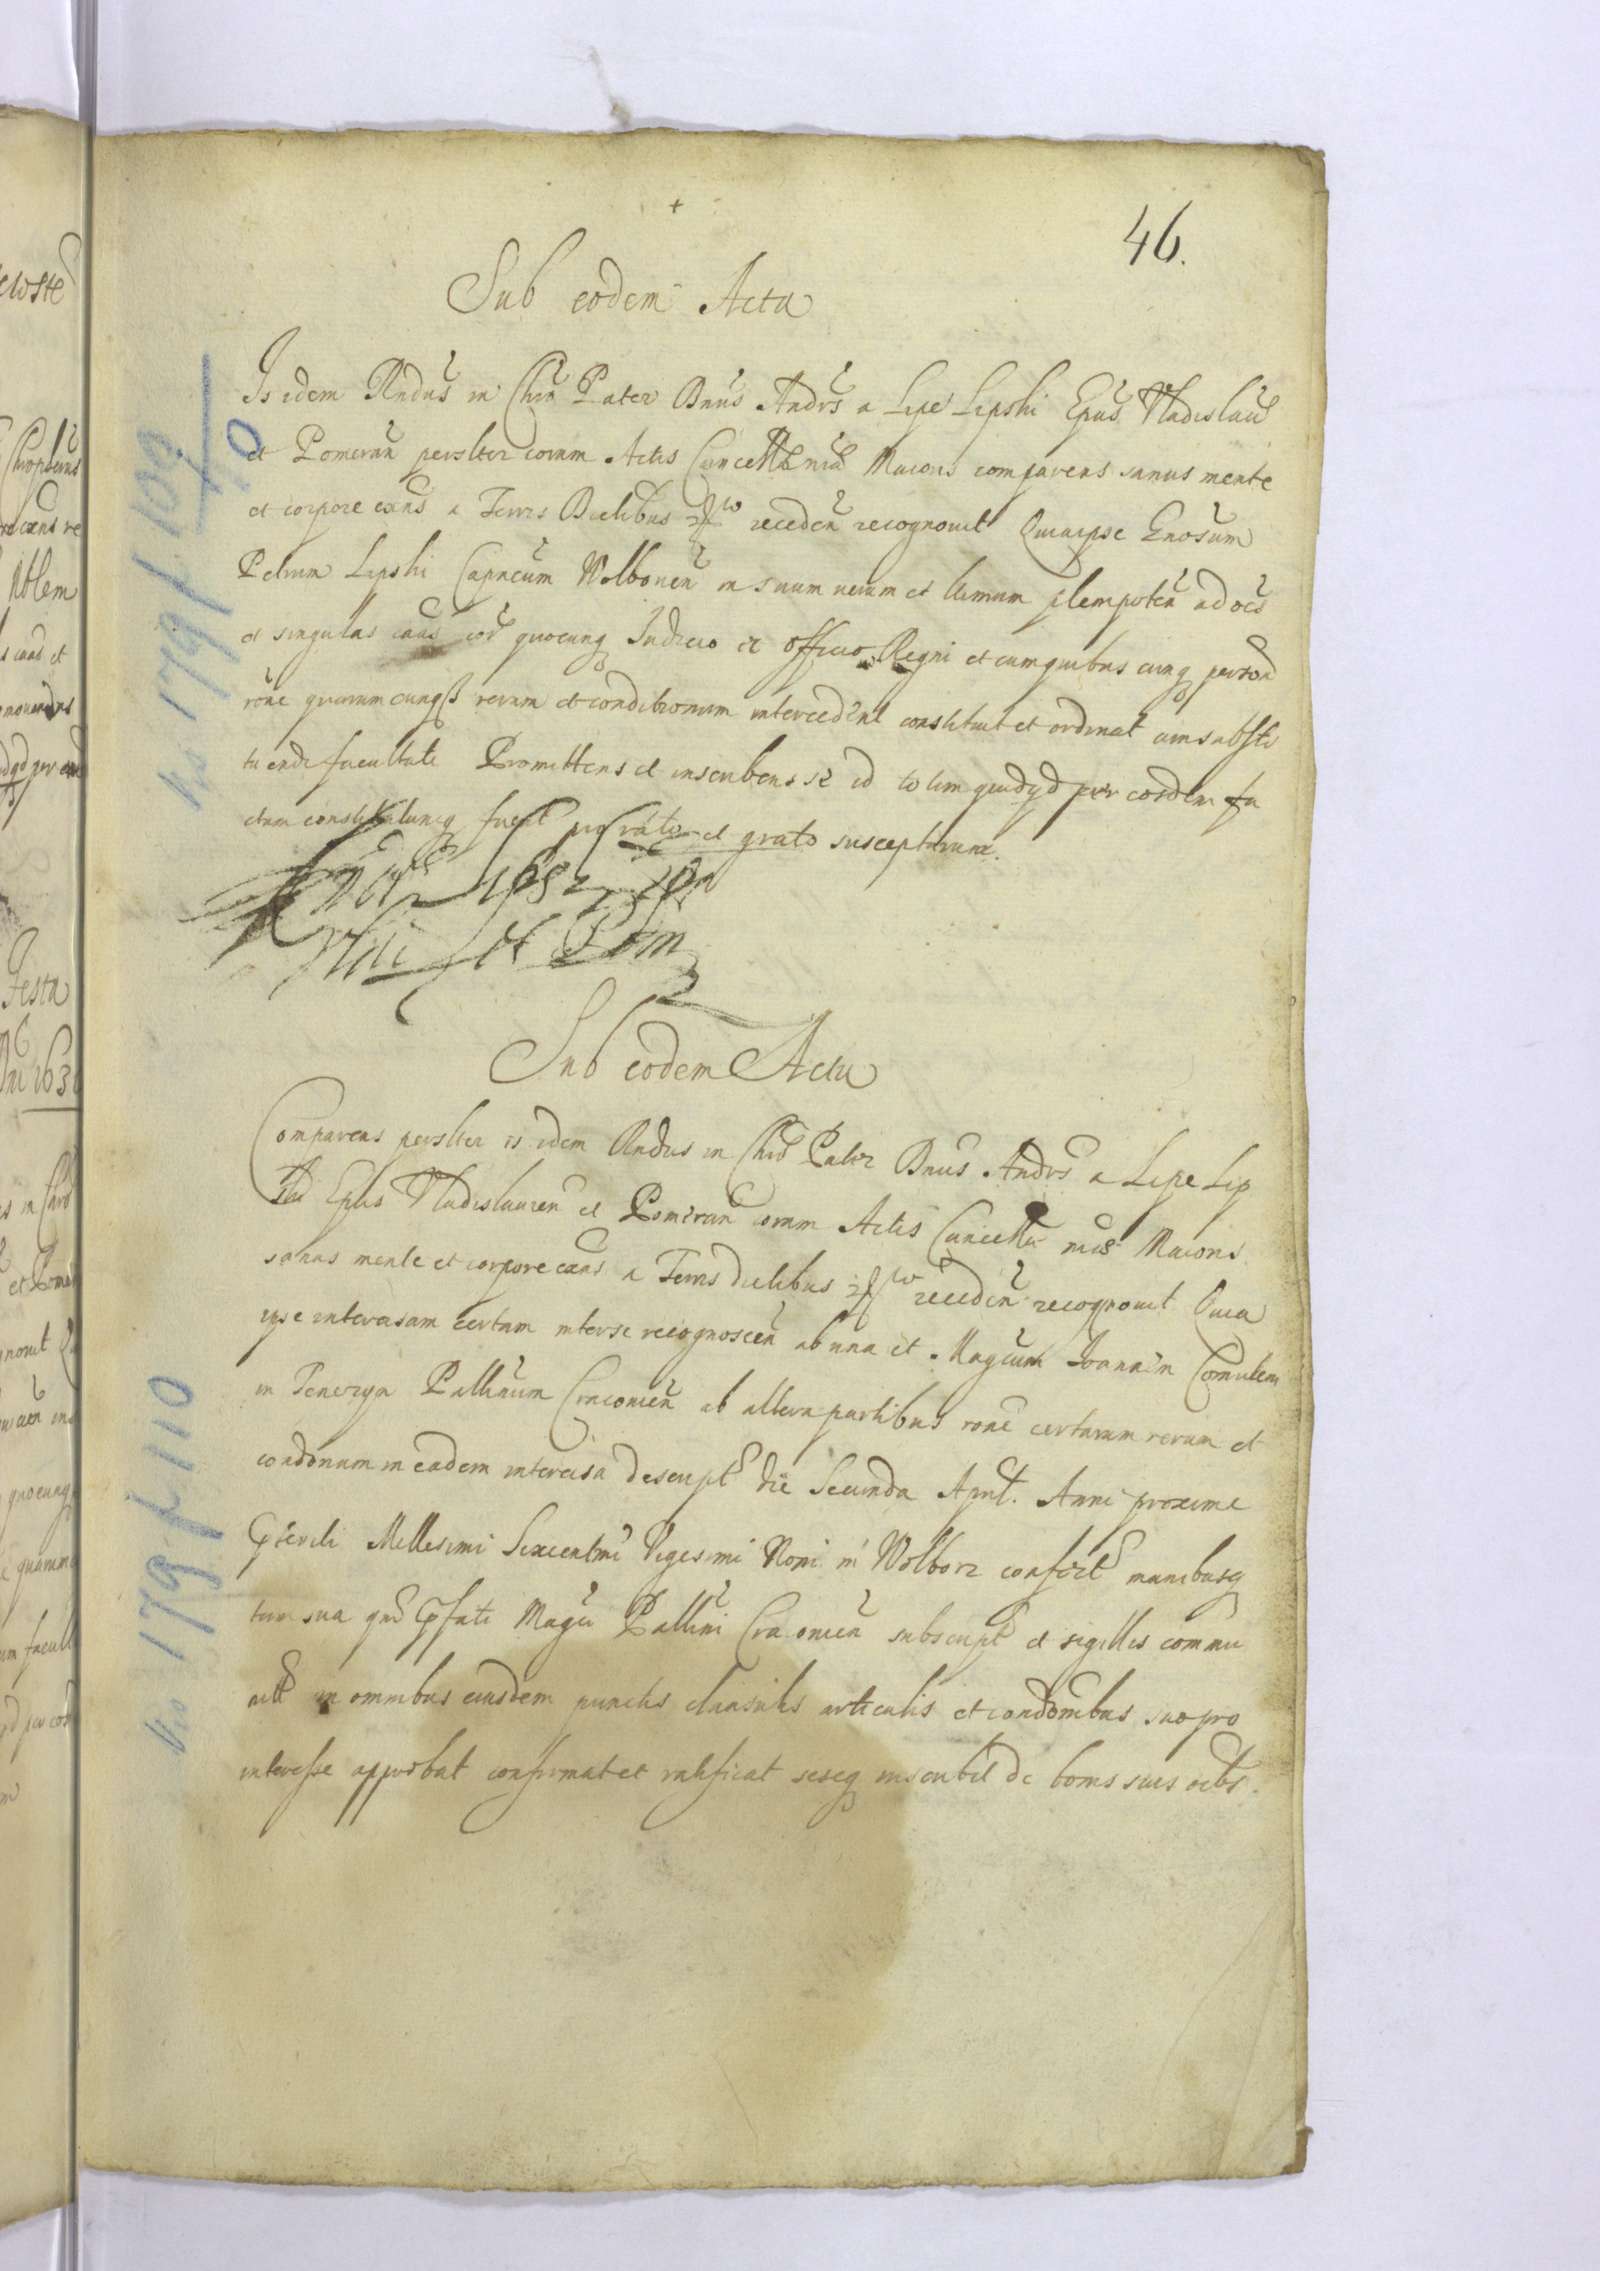 46.
Sub eodem Actu
Is idem Rndus in Chro Pater Dnus Andrs a Lipe Lipski Epus Vladislau
et Pomeran persliter coram Actis Cancellar nrae Maioris comparens sanus mente
et corpore exns a Terris Districtibus receden recognovit Quia ipse Gnosum
Petrum Lipski Capneum Wolborien in suum verum et lttimum plenipoten ad oes
et singulas caus cor quocunq Judicio et officio Regni et cum quibus cunq person
rone quarumcunq rerum et conditionum interceden constituit et ordinat cum substi
tuendi facultate Promittens et inscribens se id totum quidqd per eosdem fa
ctum constitutumq fuerit pro rato et grato suscepturum.
Sub eodem Actu
Comparens persliter is idem Rndus in Chro Pater Dnus Andrs a Lipe Lip
ski Epus Vladislauien et Pomeran coram Actis Cancella nrae Maioris
sanus mente et corpore exns a Terris dictibus receden recognovit Quia
ipse intercisam certam inter se recognoscen ab una et Magcum Joannem Comitem
in Tenczyn Pallinum Cracovien ab altera partibus rone certarum rerum et
conditionum in eadem intercisa descript die Secunda April. Anni proxime
pterili Millesimi Sexcentmi Vigesimi Noni in Wolborz confect manibusq
tum sua qm pfati Magci Pallini Cracovien subscript et sigillis commu
nit in omnibus eiusdem punctis clausulis articulis et conditionibus suo pro
interesse approbat confirmat et ratificat seseq inscribit de bonis suis oibs.
179 f 109
179 f 110